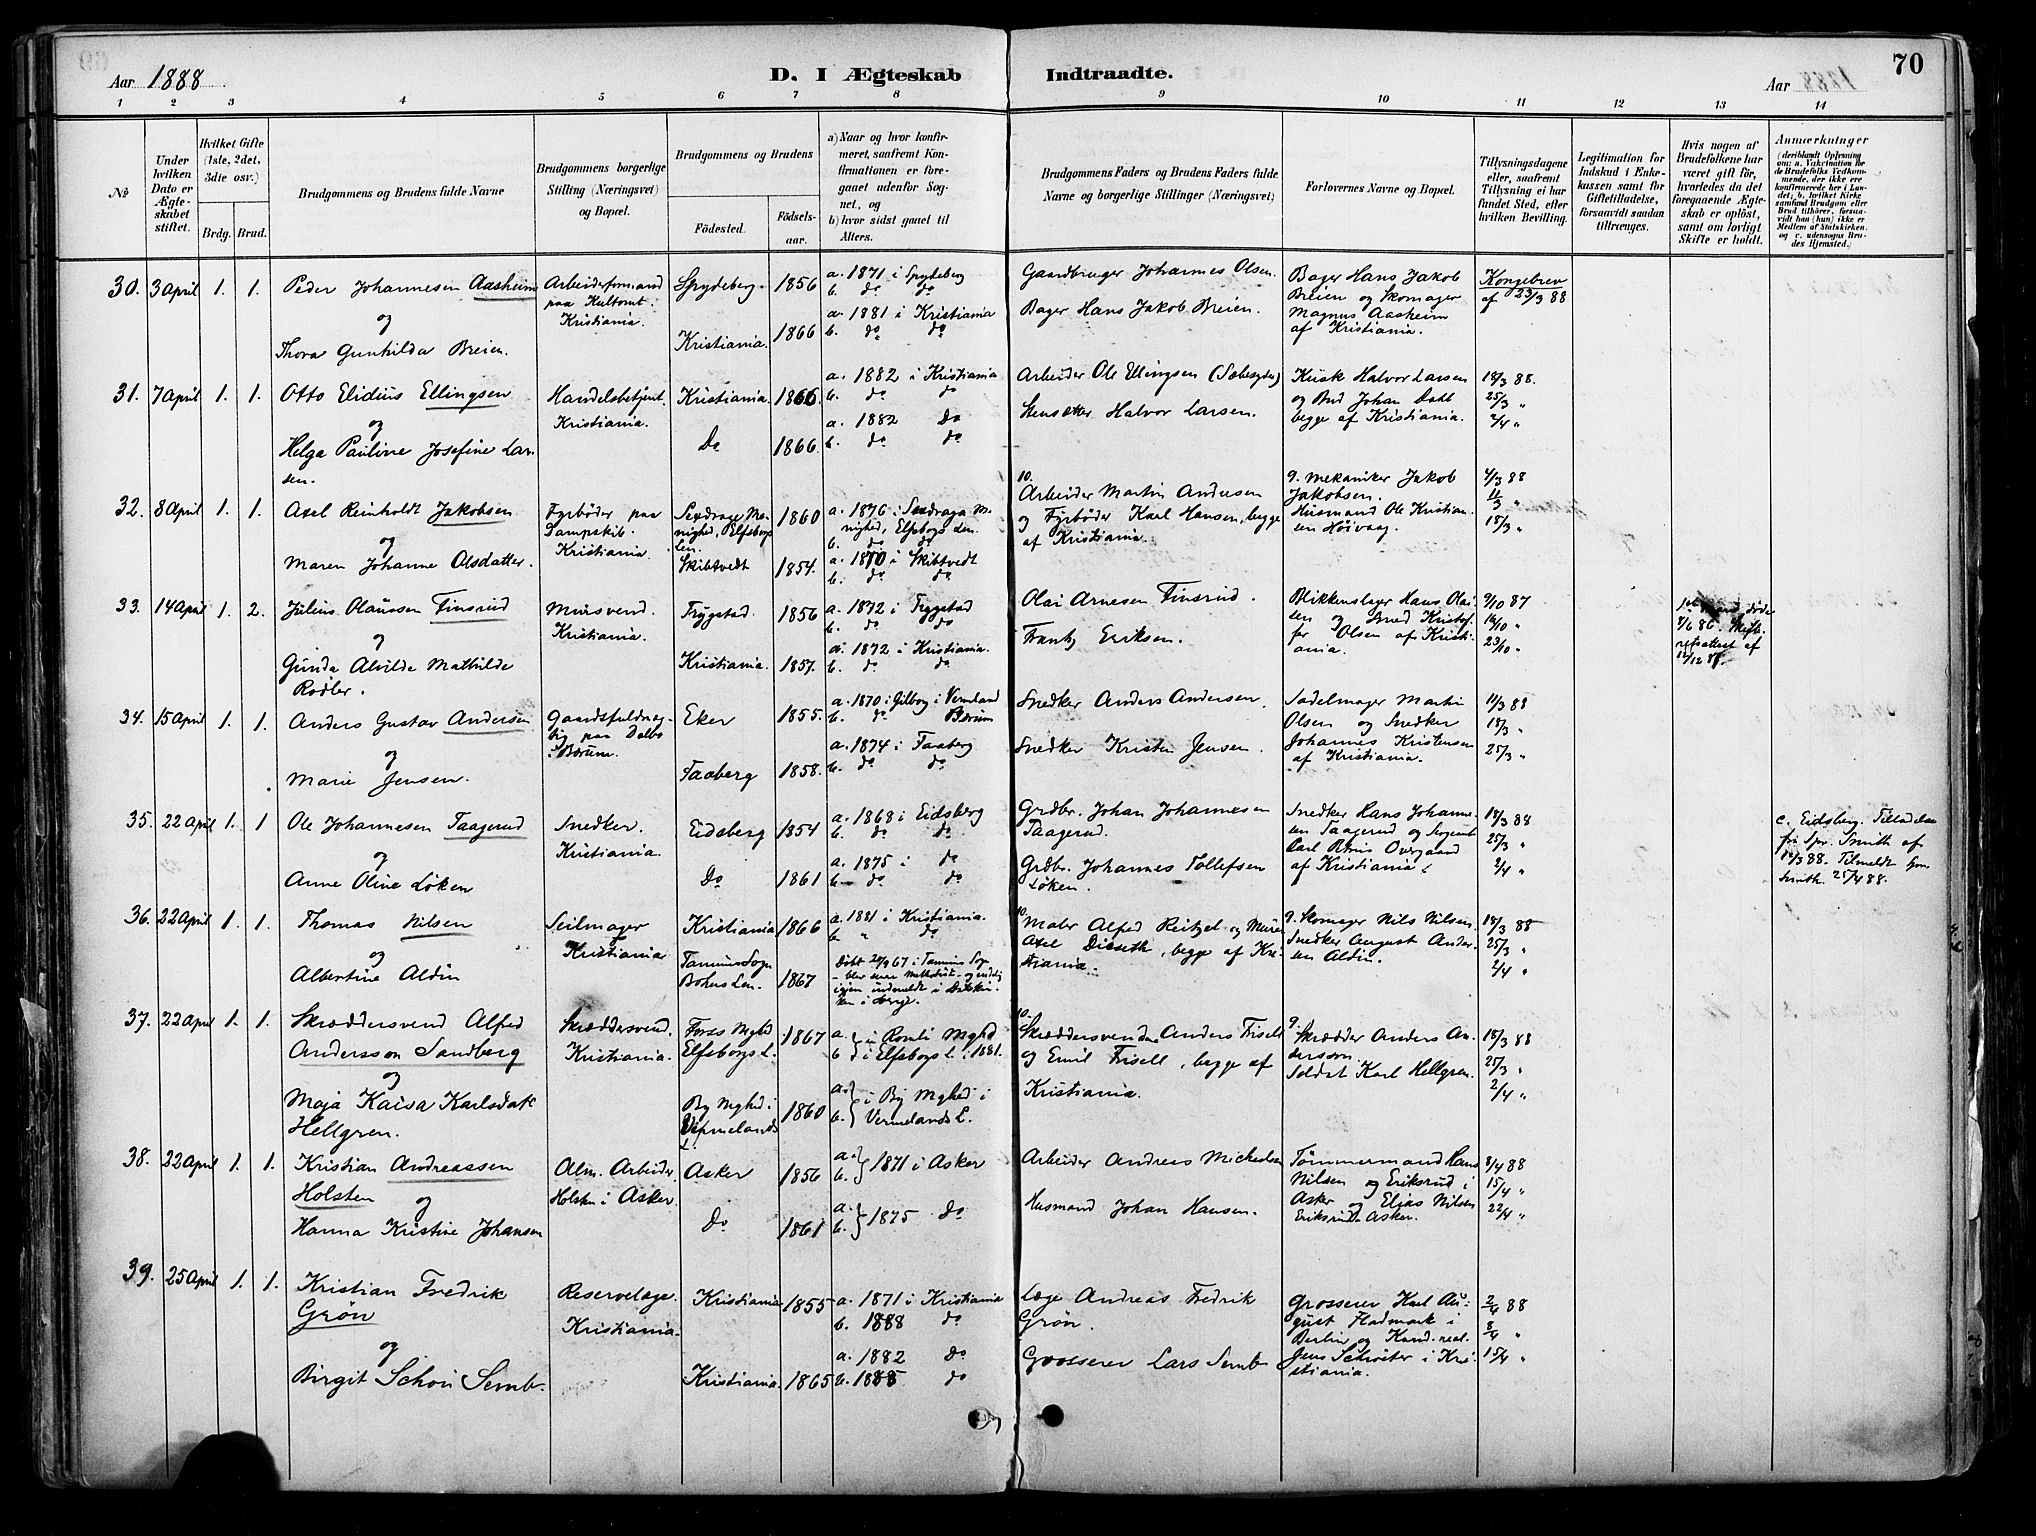 Aar 1888. D. I Ægteskab Indtraadte. Aar 1888 70
1 2 3 4 5 6 7 8 9 10 11 12 13 14
No
Under hvilken Dato er Ægteskabet stiftet.
Hvilket Gifte (1ste, 2det, 3die osv.)
Brdg. Brud.
Brudgommens og Brudens fulde Navne
Brudgommens borgerlige Stilling (Næringsvei) og Bopæl.
Brudgommens og Brudens
Fødested. Fødselsaar.
a) Naar og hvor konfirmeret, saafremt Konfirmationen er foregaaet udenfor Sognet, og
b) hvor sidst gaaet til Alters.
Brudgommens Faders og Brudens Faders fulde Navne og borgerlige Stillinger (Næringsvei)
Forlovernes Navne og Bopæl.
Tillysningsdagene eller, saafremt Tillysning ei har fundet Sted, efter hvilken Bevilling.
Legitimation for Indskud i Enkekassen samt for Giftetilladelse, forsaavidt saadan tiltrænges.
Hvis nogen af Brudefolkene har været gift før, hvorledes da det foregaaende Ægteskab er opløst, samt om lovligt Skifte er holdt.
Anmærkninger (deriblandt Oplysning om: a. Vakcination for de Brudefolks Vedkommende, der ikke ere konfirmerede her i Landet; b. hvilket Kirkesamfund Brudgom eller Brud tilhører, forsaavidt han (hun) ikke er Medlem af Statskirken, og c. udensogns Brudes Hjemsted.)
30. 3 April 1. 1. Peder Johannesen Aasheim
og
Thora Gunhilda Breien.
Arbeidsformand
paa
Kristiania.
Spydeberg 1856
Kristiania. 1866
a. 1871 i Spydeberg
b. do do
a. 1881 i Kristiania
b. do do
Gaardbruger Johannes Olsen.
Bager Hans Jakob Breien.
Bager Hans Jakob
Breien og Skomager
Magnus Aasheim
af Kristiania.
Kongebrev
af 23/3 88
31. 7 April 1. 1. Otto Elidius Ellingsen
og
Helga Pauline Josefine Lar
sen.
Handelsbetjent.
Kristiania.
Kristiania. 1866.
Do 1866.
a. 1882 i Kristiania
b. do do
a. 1882 Do
b. do do
Arbeider Ole Ellingsen (Sæbesyder)
Stensætter Halvor Larsen.
Kusk Halvor Larsen
og Bud Johan Dahl
begge af Kristiania.
18/3 88.
25/3 "
2/4 "
32. 8 April 1. 1. Axel Reinholdt Jakobsen
og
Maren Johanne Olsdatter.
Fyrbøder paa
Dampskib.
Kristiania.
Sexdraga Me-
nighed, Elfsborgs
Len. 1860
Skibtvedt 1854.
a. 1876 i Sexdraga M-
nighed, Elfsborgs Len.
b. do do
a. 1870 i Skibtvedt
b. do do
10.
Arbeider Martin Andersen
og Fyrbøder Karl Hansen, begge
af Kristiania.
9. Mekaniker Jakob
Jakobsen.
Husmand Ole Kristian-
sen Høivaag.
4/3 88
11/3 "
18/3 "
33. 14 April 1. 2. Julius Olaussen Finsrud
og
Gunda Alvilde Mathilde
Rødler.
Mursvend.
Kristiania.
Trygstad 1856
Kristiania. 1857.
a. 1872 i Trygstad
b. do do
a. 1872 i Kristiania.
b. do do
Olai Arnesen Finsrud.
Frantz Eriksen.
Blikkenslager Hans Olai-
sen og Smed Kristof-
fer Olsen af Kristi-
ania.
9/10 87
16/10 "
23/10 "
døde
8/6 86.
af
12/12 87.
34. 15 April 1. 1. Anders Gustav Andersen
og
Marie Jensen.
Gaardsfuldmæg-
tig paa Dalbo
i Bærum.
Eker 1855.
Faaberg 1858.
a. 1870 i Gilborg i Vermland
b. do Bærum
a. 1874 i Faaberg
b. do do
Snedker Anders Andersen.
Snedker Kristen Jensen.
Sadelmager Martin
Olsen og Snedker
Johannes Kristensen
af Kristiania.
11/3 88
18/3 "
25/3 "
35. 22 April 1. 1 Ole Johannesen Taagerud
og
Anne Oline Løken
Snedker.
Kristiania.
Eidsberg 1854
Do 1861
a. 1868 i Eidsberg
b. do do
a. 1875 i do
b. do do
Grdbr. Johan Johannesen
Taagerud.
Grdbr. Johannes Tollefsen
Løken.
Snedker Hans Johanne-
sen Taagerud og Sergeant
Carl Overgaard
af Kristiania.
18/3 88
25/3 "
2/4 "
c. Eidsberg.
fra Spr. Smith af
88. Tilmeldt
Smith. 25/4 88.
36. 22 April 1. 1. Thomas Nilsen
og
Albertine Aldin
Seilmager
Kristiania
Kristiania 1866
Tanums Sogn
Bohus Len. 1867
a. 1881 i Kristiania.
b. " do
Døbt 21/9 67 i Tanums Sogn
blev senere Methodist og endelig
igjen indmeldt i Statskir-
ken i Sverige.
10. Maler Alfred Reitzel og Murer
Axel Dieseth, begge af Kri-
stiania.
9. Skomager Nils Nilsen.
Snedker August Ander-
sen Aldin.
18/3 88
25/3 "
2/4 "
37. 22 April 1. 1. Skræddersvend Alfred
Andersson Sandberg
og
Maja Kaisa Karlsdatr
Hellgren.
Skræddersvend.
Kristiania.
Fors Mghd
Elfsborgs L. 1867
By Mghed i
Vermelands
L. 1860
a. i Romli Mghd
b. i Elfsborgs L. 1881.
a.
b. i By Mghed i
Vermelands L.
10.
Skræddersvendne Anders Frisell
og Emil Frisell, begge af
Kristiania.
9. Skrædder Anders An-
dersson.
Soldat Karl Hellgren.
18/3 88
25/3 "
2/4 "
38. 22 April 1. 1. Kristian Andreassen
Holsten
og
Hanna Kristine Johansen
Alm. Arbeider.
Holsten i Asker.
Asker 1856
Do 1861
a.
b. 1871 i Asker
a.
b. 1875 Do
Arbeider Andreas Michelsen
Husmand Johan Hansen.
Tømmermand Hans
Nilsen og Eriksrud i
Asker og Elias Nilsen
Eriksrud Asker.
8/4 88
15/4 "
22/4 "
39. 25 April 1. 1. Kristian Fredrik
Grøn
og
Birgit Schou Semb.
Reservelæge.
Kristiania.
Kristiania 1855
Kristiania. 1865
a. 1871 i Kristiania
b. 1888 do
a. 1882 Do
b. 1885 do
Læge Andreas Fredrik
Grøn.
Grosserer Lars Semb
Grosserer Karl Au-
gust Fladmark i
Berlin og Kand. real.
Jens Schrøter i Kri-
stiania.
2/4 88
8/4 "
15/4 "